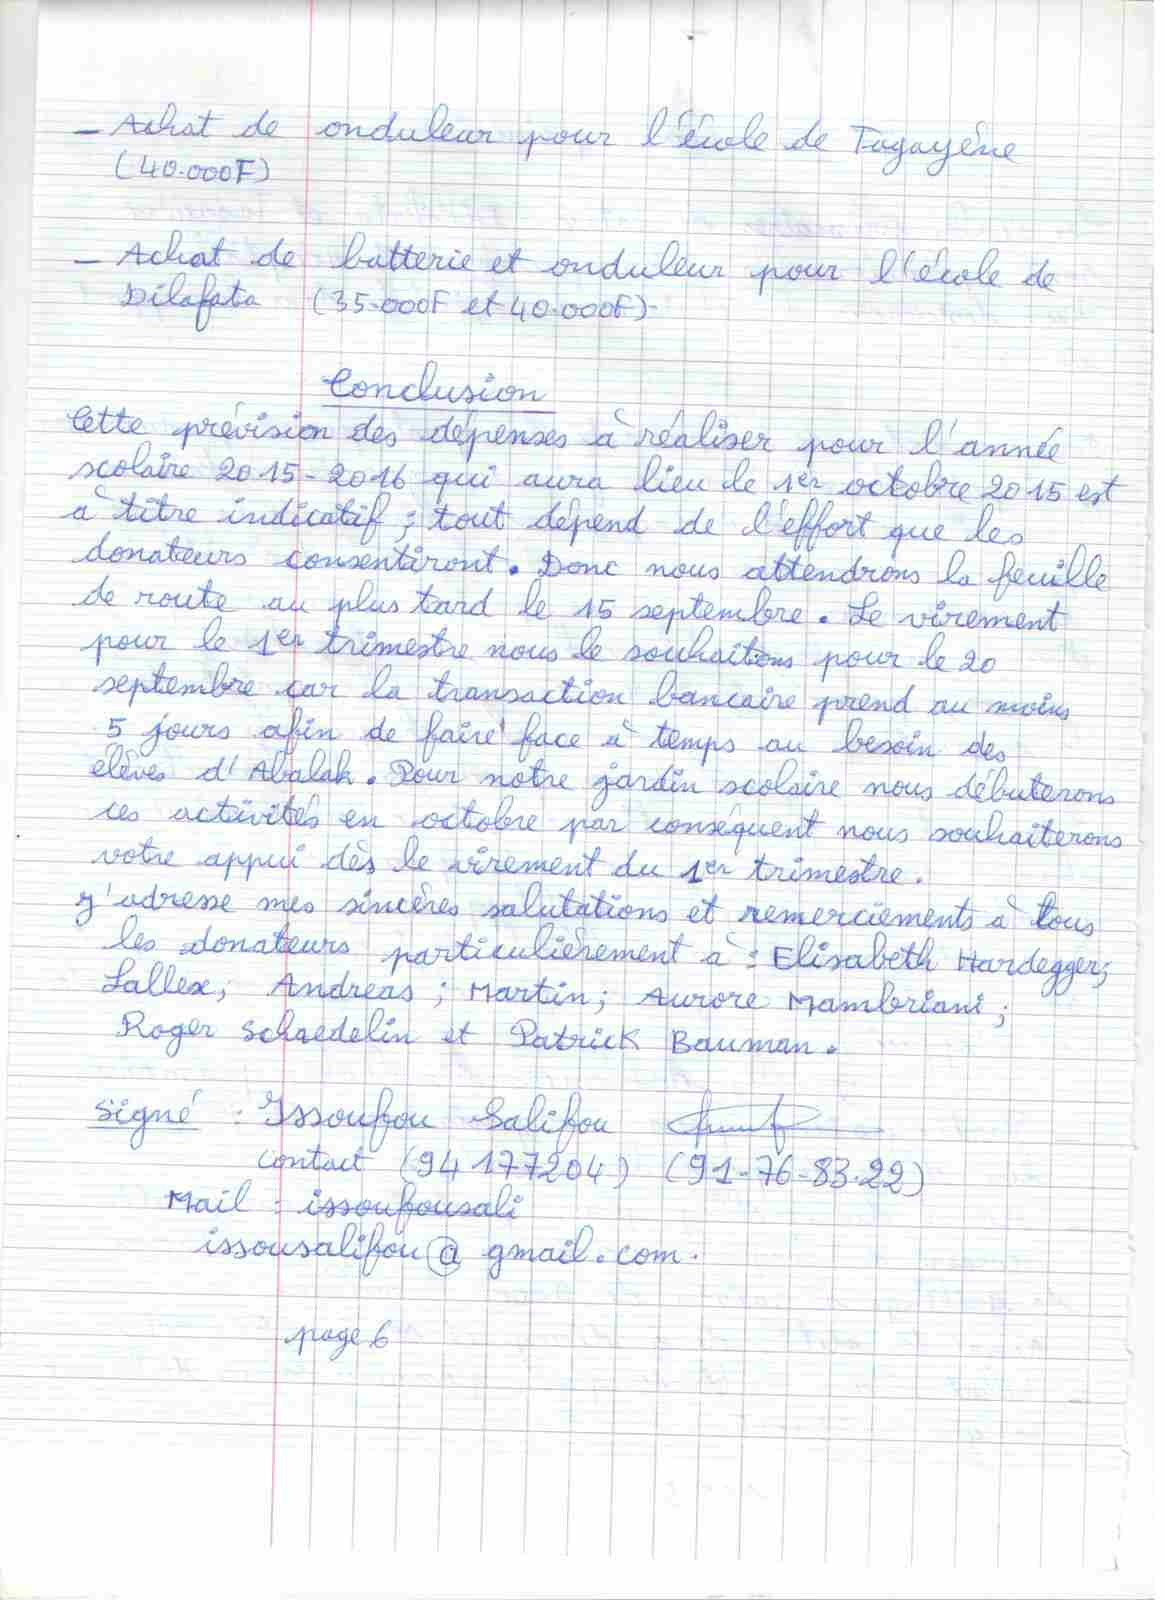 - Achat de onduleur pour l'école de Tagayène
(40.000F)
- Achat de batterie et onduleur pour l'école de
Dilafata (35.000F et 40.000F)-
Conclusion
Cette prévision des dépenses à réaliser pour l'année
scolaire 2015-2016 qui aura lieu le 1er octobre 2015 est
à titre indicatif ; tout dépend de l'effort que les
donateurs consentiront. Donc nous attendrons la feuille
de route au plus tard le 15 septembre. Le virement
pour le 1er trimestre nous le souhaitons pour le 20
septembre car la transaction bancaire prend au moins
5 jours afin de faire face à temps au besoin des
élèves d'Abalak. Pour notre jardin scolaire nous débuterons
ces activités en octobre par conséquent nous souhaiterons
votre appui dès le virement du 1er trimestre.
J'adresse mes sincères salutations et remerciements à tous
les donateurs particulièrement à : Elisabeth Hardegger;
Lallex; Andreas ; Martin; Aurore Mambriani ;
Roger Schaedelin et Patrick Bauman.
Signé : Issoufou Salifou
contact (94177204) (91-76-83-22)
Mail : issoufousali
issousalifou@gmail.com.
page 6